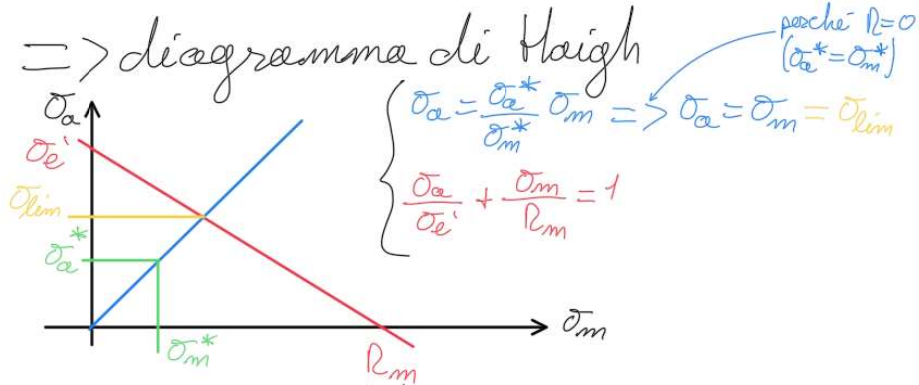 => diagramma di Haigh
perché R=0
(σa*=σm*)
σa = σa*/σm* σm => σa = σm = σlim
σa/σe' + σm/Rm = 1
σa
σe'
σlim
σa*
σm*
Rm
σm